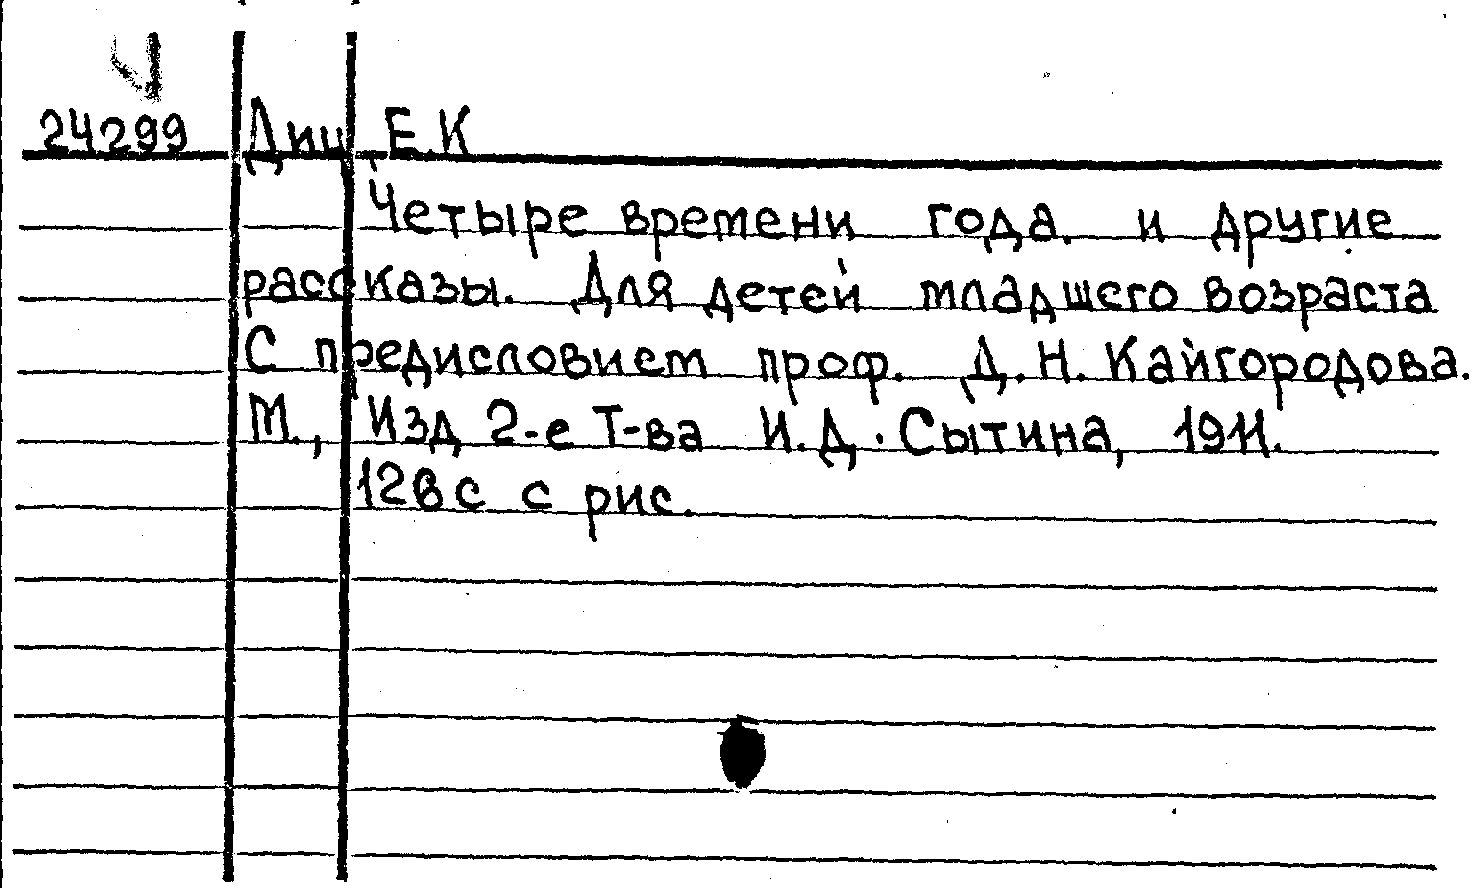 24299 Диц Е.К
Четыре времени года. и другие
рассказы. Для детей младшего возраста
С предисловием проф. Д.Н. Кайгородова.
М., Изд 2-е Т-ва И.Д. Сытина, 1911.
128 с с рис.